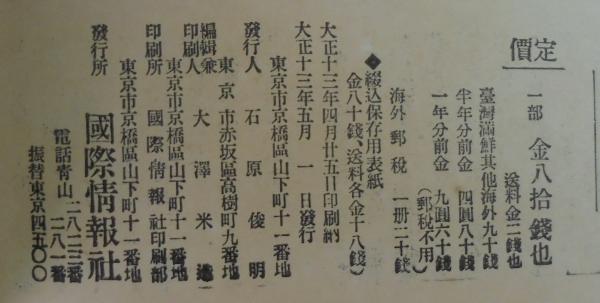 定價
一部 金八拾錢也
送料金二錢也
臺灣滿鮮其他海外九十錢
半年分前金 四圓八十錢
一年分前金 九圓六十錢
(郵稅不用)
海外郵稅 一册二十錢
◆綴込保存用表紙
金八十錢、送料各金十八錢)
大正十三年四月廿五日印刷納
大正十三年五月一日發行
東京市京橋區山下町十一番地
發行人 石原俊明
東京市赤坂區高樹町九番地
編輯兼
印刷人 大澤米
東京市京橋區山下町十一番地
印刷所 國際情報社印刷部
東京市京橋區山下町十一番地
發行所 國際情報社
電話靑山 二八二三番
二八一番
振替東京四五〇〇